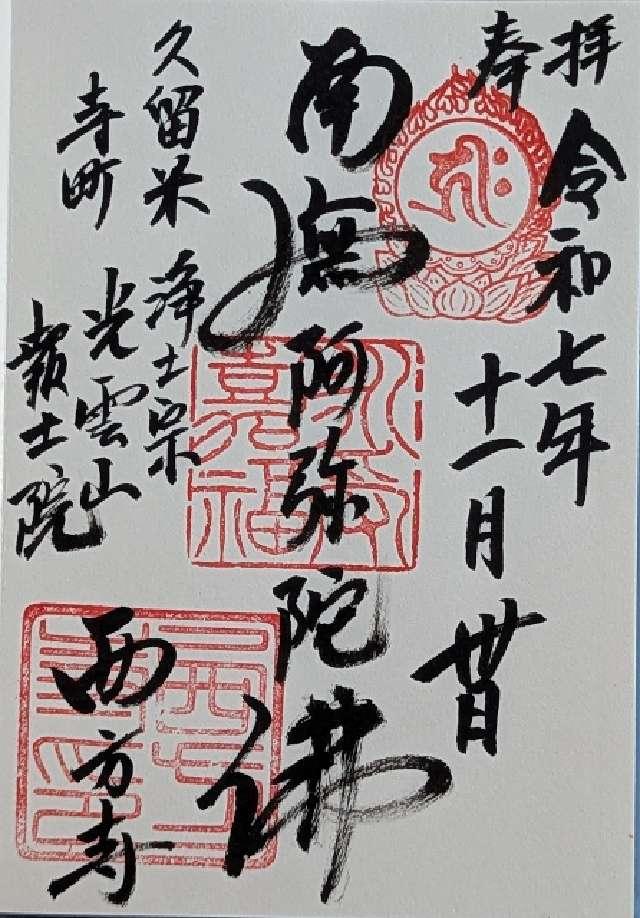 奉拝
令和七年
十一月日
南無阿弥陀佛
永受嘉福
久留米
寺町
浄土宗
光雲山
報土院
西方寺